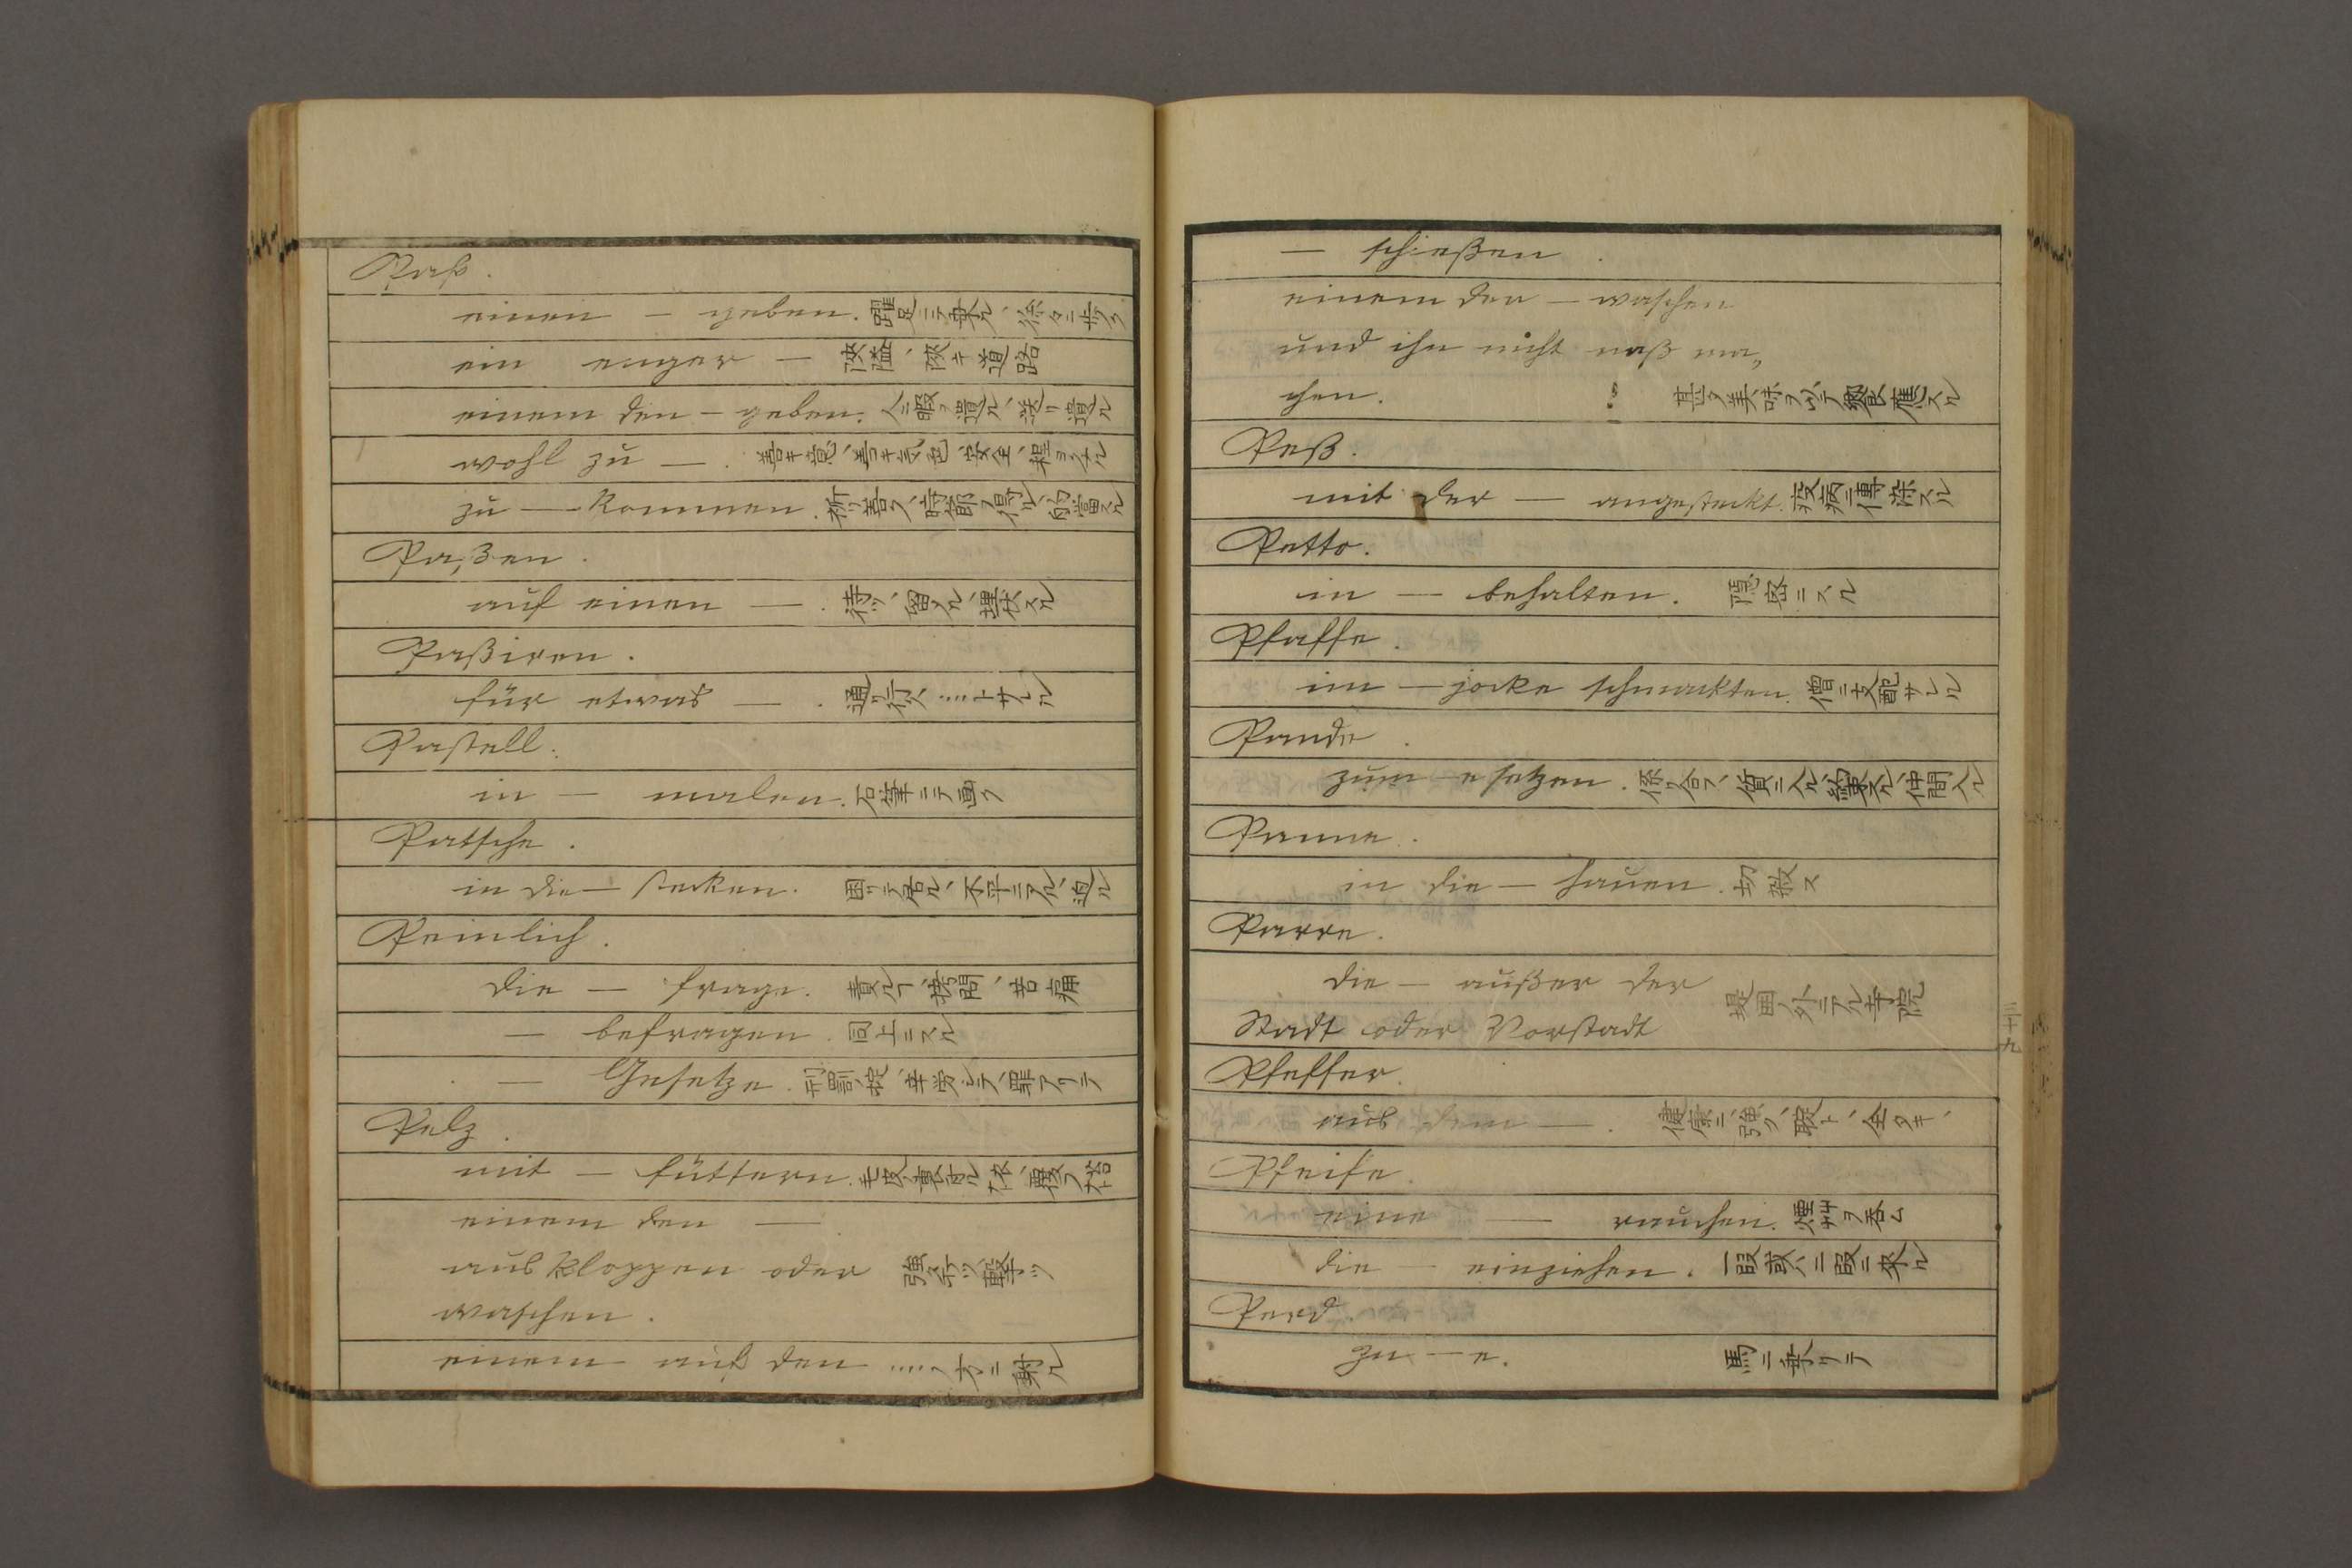 Paß.
einen — geben. 躍足ニテ乗ル、徐々ニ歩ク
ein enger — 陝隘、陝キ道路
einem den — geben. 暇ヲ遣ル、送リ遣ル
wohl zu —. 善キ意、善キ気色、安全、程ヨク
zu — kommen. 時節ヲ得ル、的當スル
Paßen.
auf einen —. 待ツ、留メル、埋伏スル
Paßiren.
für etwas —. 通リ行ク、……トサレル
Pastell.
in — malen. 石筆ニテ画ク
Patsche.
in die — stecken. 困リテ居ル、不平ニアル、迫ル
Peinlich.
die — Frage. 責ル、拷問、苦痛
— befragen. 同上ニスル
— Gesetze. 刑罰ノ掟、辛労シテ、罪アリテ
Pelz.
mit — füttern. 毛皮
einem den —
auskloppen oder 強ク打ツ、撃ツ
waschen.
einem auf den ……ノ方ニ射ル
— schießen.
einem den — waschen
und ihn nicht naß ma„
chen. 甚タ美味ヲ以テ饗應スル
Peß.
mit der — angesteckt. 疫病ニ傳染スル
Petto.
in — behalten. 隠密ニスル
Pfaffe.
im — jocke schmackten. 僧ニ支配サレル
Pande.
zum — e setzen. 係リ合フ、質ニ入ル、約束スル、仲間ニ入ル
Panne.
in die — hauen. 切殺ス
Parre.
die — außer der 堤囲ノ外ニアル寺院
Stadt oder Vorstadt
Pfeffer.
aus dem —. 健康ニ、強ク、
Pfeife.
eine — rauchen. 煙艸ヲ呑ム
die — einziehen. 一段或ハ二段ニ来ル
Perd.
zu — e. 馬ニ乗リテ
三十九